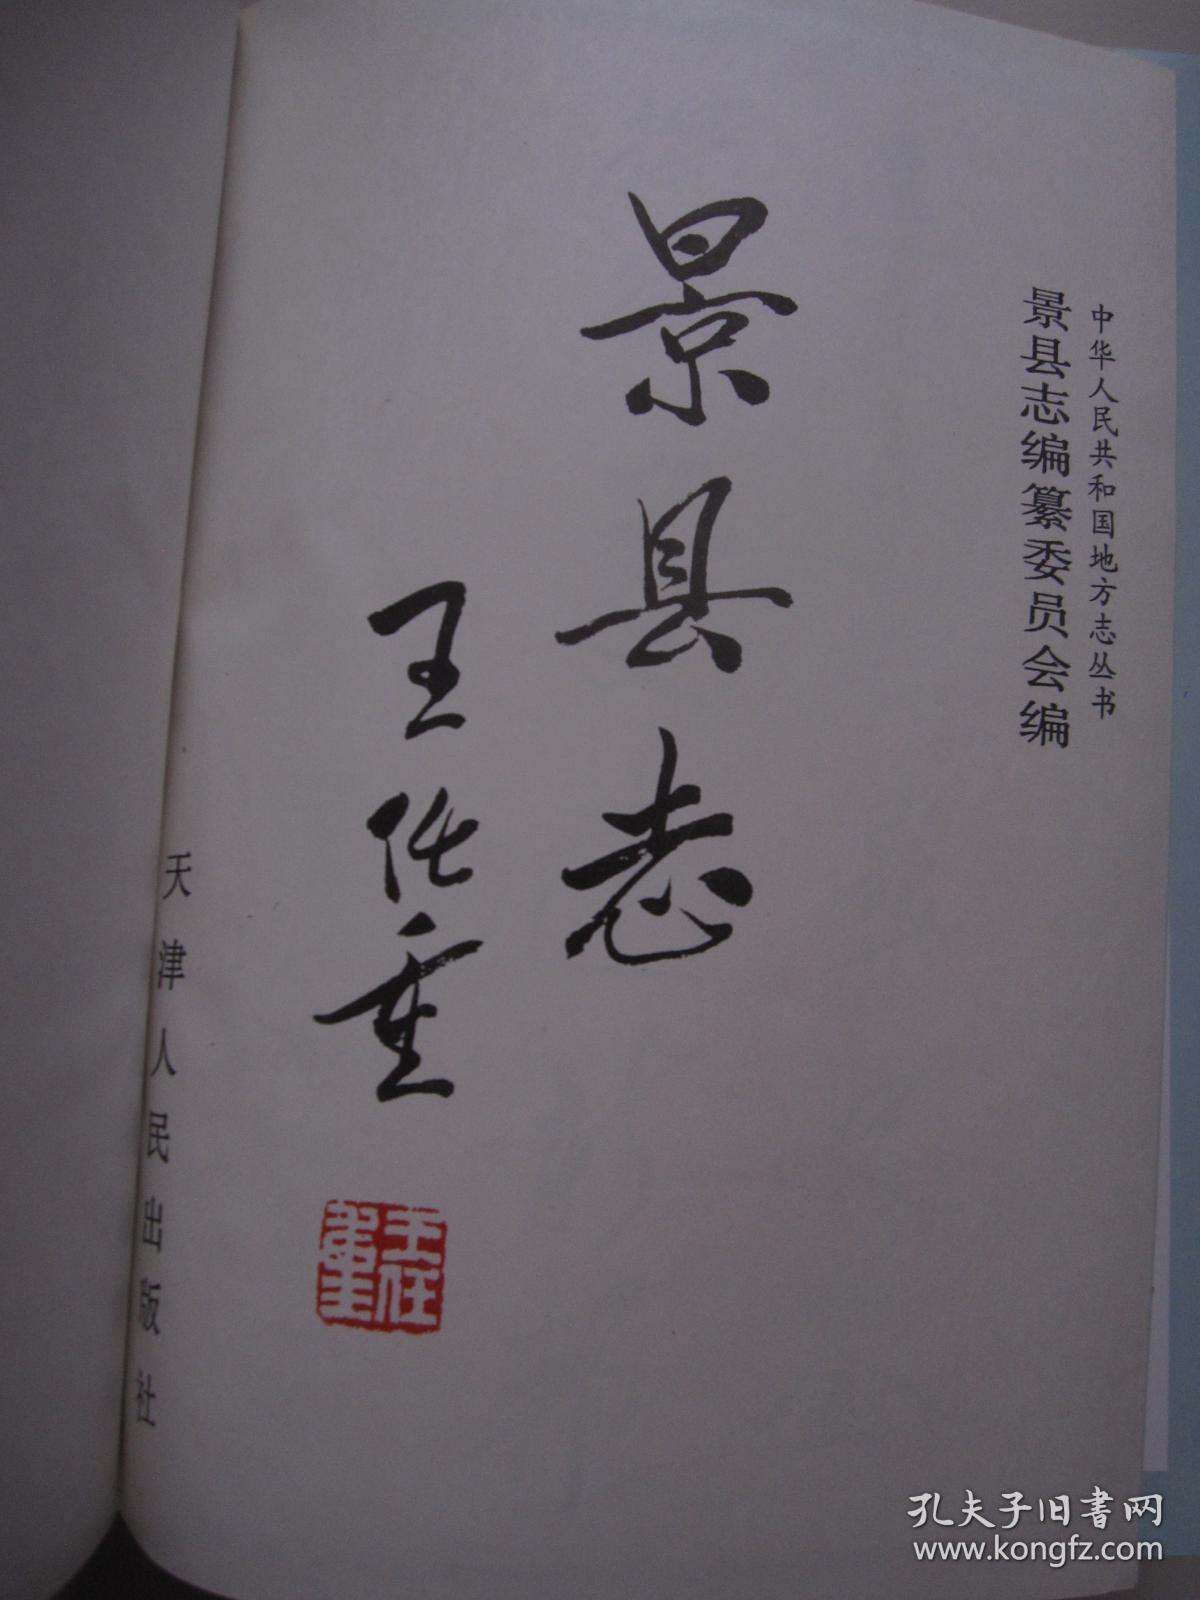 中华人民共和国地方志丛书
景县志编纂委员会编
景县志
王任重
王任重
天津人民出版社
孔夫子旧书网
www.kongfz.com